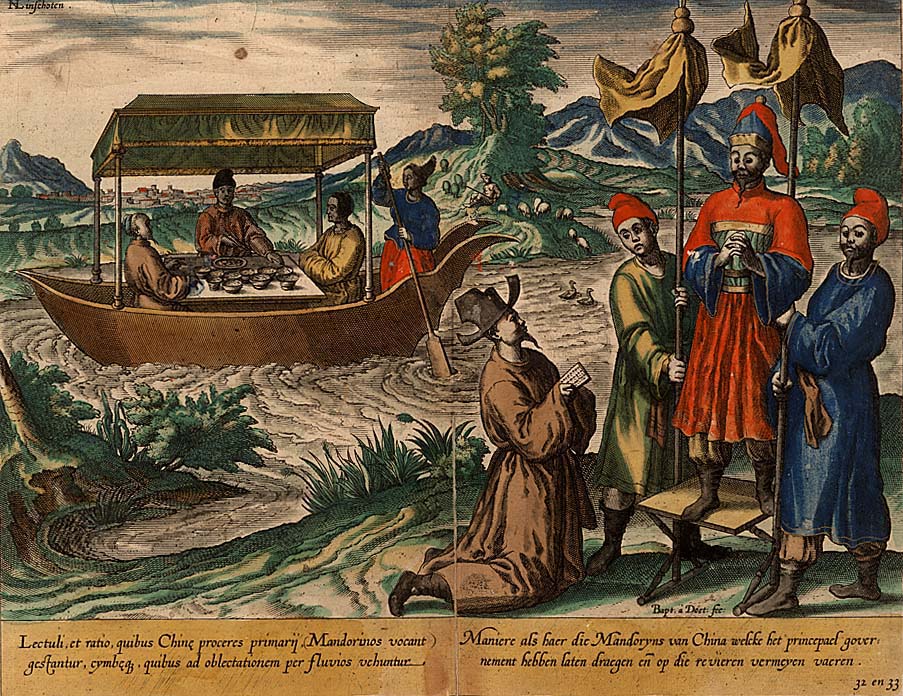 Linschoten.
Bapt. a Doet. fec.
Lectuli, et ratio, quibus Chinę proceres primarij (Mandorinos vocant)
gestantur, cymbęq, quibus ad oblectationem per fluvios vehuntur
Maniere als haer die Mandoryns van China welcke het princepael gover-
nement hebben laten draegen eñ op die revieren vermeyen vaeren.
32 en 33